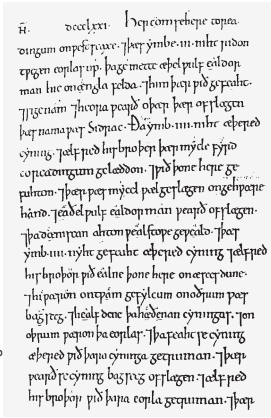 N̄. dccclxxi. Her com se here to rea
dingum on ƿest seaxe. ⁊ þæs ymbe .iii. niht ridon
tƿegen eorlas up. þa gemette æþelƿulf ealdor
man hie on engla felda. ⁊ him þær ƿið gefeaht.
⁊ sige nam ⁊ heora ƿearð oþer þær ofslegen
þæs nama ƿæs Sidrac. Ða ymb .iiii. niht æþered
cyning. ⁊ ælfred his broþer þær mycle fyrd
to readingum gelæddon. ⁊ ƿið þone here ge
fuhton. ⁊ þær ƿæs mycel ƿælgslægen on gehƿæþre
hand. ⁊ eaðelƿulf ealdorman ƿearð ofslægen.
⁊ þa deniscan ahton ƿælstoƿe geƿeald. ⁊ þæs
ymb .iiii. nyht gefeaht æþered cyning ⁊ ælfred
his broþor ƿið ealne þone here on æsces dune.
⁊ hi ƿæron on tƿam gefylcum on oðrum ƿæs
bagsecg. ⁊ healfdene þa hæðenan cyningas. ⁊ on
oþrum ƿæron þa eorlas. ⁊ þa feaht se cyning
æþered ƿið þara cyninga getruman. ⁊ þær
ƿearð se cyning bagsecg ofslægen. ⁊ ælfred
his broþor ƿið þara eorla getruman. ⁊ þær